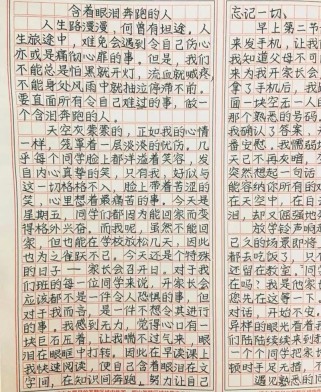 含着眼泪奔跑的人
人生路漫漫,何曾有坦途,人
生旅途中,难免会遇到令自己伤心
亦或是痛彻心扉的事。但是,我们
不能总是怕黑就开灯,流血就喊疼,
不能身处风雨中就抽泣停滞不前,
要直面所有令自己难过的事,做一
个含泪奔跑的人。
天空灰蒙蒙的,正如我的心情
一样,笼罩着一层淡淡的忧伤。几
乎每个同学脸上都洋溢着笑容,发
自内心真挚的笑,只有我,好似与
这一切格格不入,脸上带着苦涩的
笑,心里想着最痛苦的事。今天是
星期五,同学们都因为能回家而变
得格外兴奋。而我呢,虽然不能回
家,但也能在学校放松几天,因此
也为之雀跃不已。今天还是个特殊
的日子——家长会召开日。对于我
们班的每一位同学来说,开家长会
应该都不是一件令人恐惧的事,但
对于我而言,是一件不想令其进行
的事。我感到无力,觉得心口有一
块巨石压着,让我喘不过气来,眼
泪在眼眶中打转,因此在早读课上
我快速低头,使自己含着眼泪在文
字间,在知识间奔跑,努力让自己
忘记一切。
早上第二节
来发手机,让我
我知道父母不可
来为我开家长会
拿了手机后,我
面一块空无一人
那个熟悉的号码
我确认了答案,
番安慰,我懦弱
天已不再灰暗,
突然想起一句话
能容纳你所有的
在天空中,在自
泪,却又倔强地
放学铃声响
己久的场景即将
都去吃饭了,只
还留在教室。"同
在吗?我是他家
您先在这等一下。
对话,开始不安,
们陆陆续续来到
一个个同学把家
顿时手足无措,
遇见熟悉的